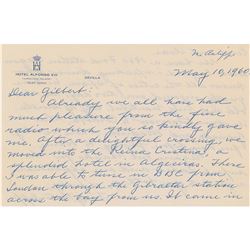 HOTEL ALFONSO XIII
SEVILLA
May 10, 1960
Dear Gilbert:
Already we all have had
much pleasure from the fine
radio which you so kindly gave
me. After a delightful crossing, we
moved into the Reina Cristina, a
splendid hotel in Algeciras. There
I was able to tune in BBC from
London through the Gibraltar station
across the bay from us. It came in